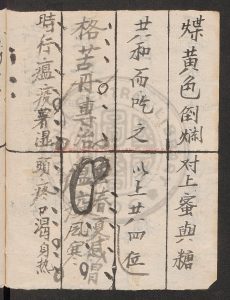 煠黃色倒爛对上蜜與糖
共和而吃之 以上廿四位
格苦丹專治 春夏温
時行瘟疫暑湿頭疼口渴身热